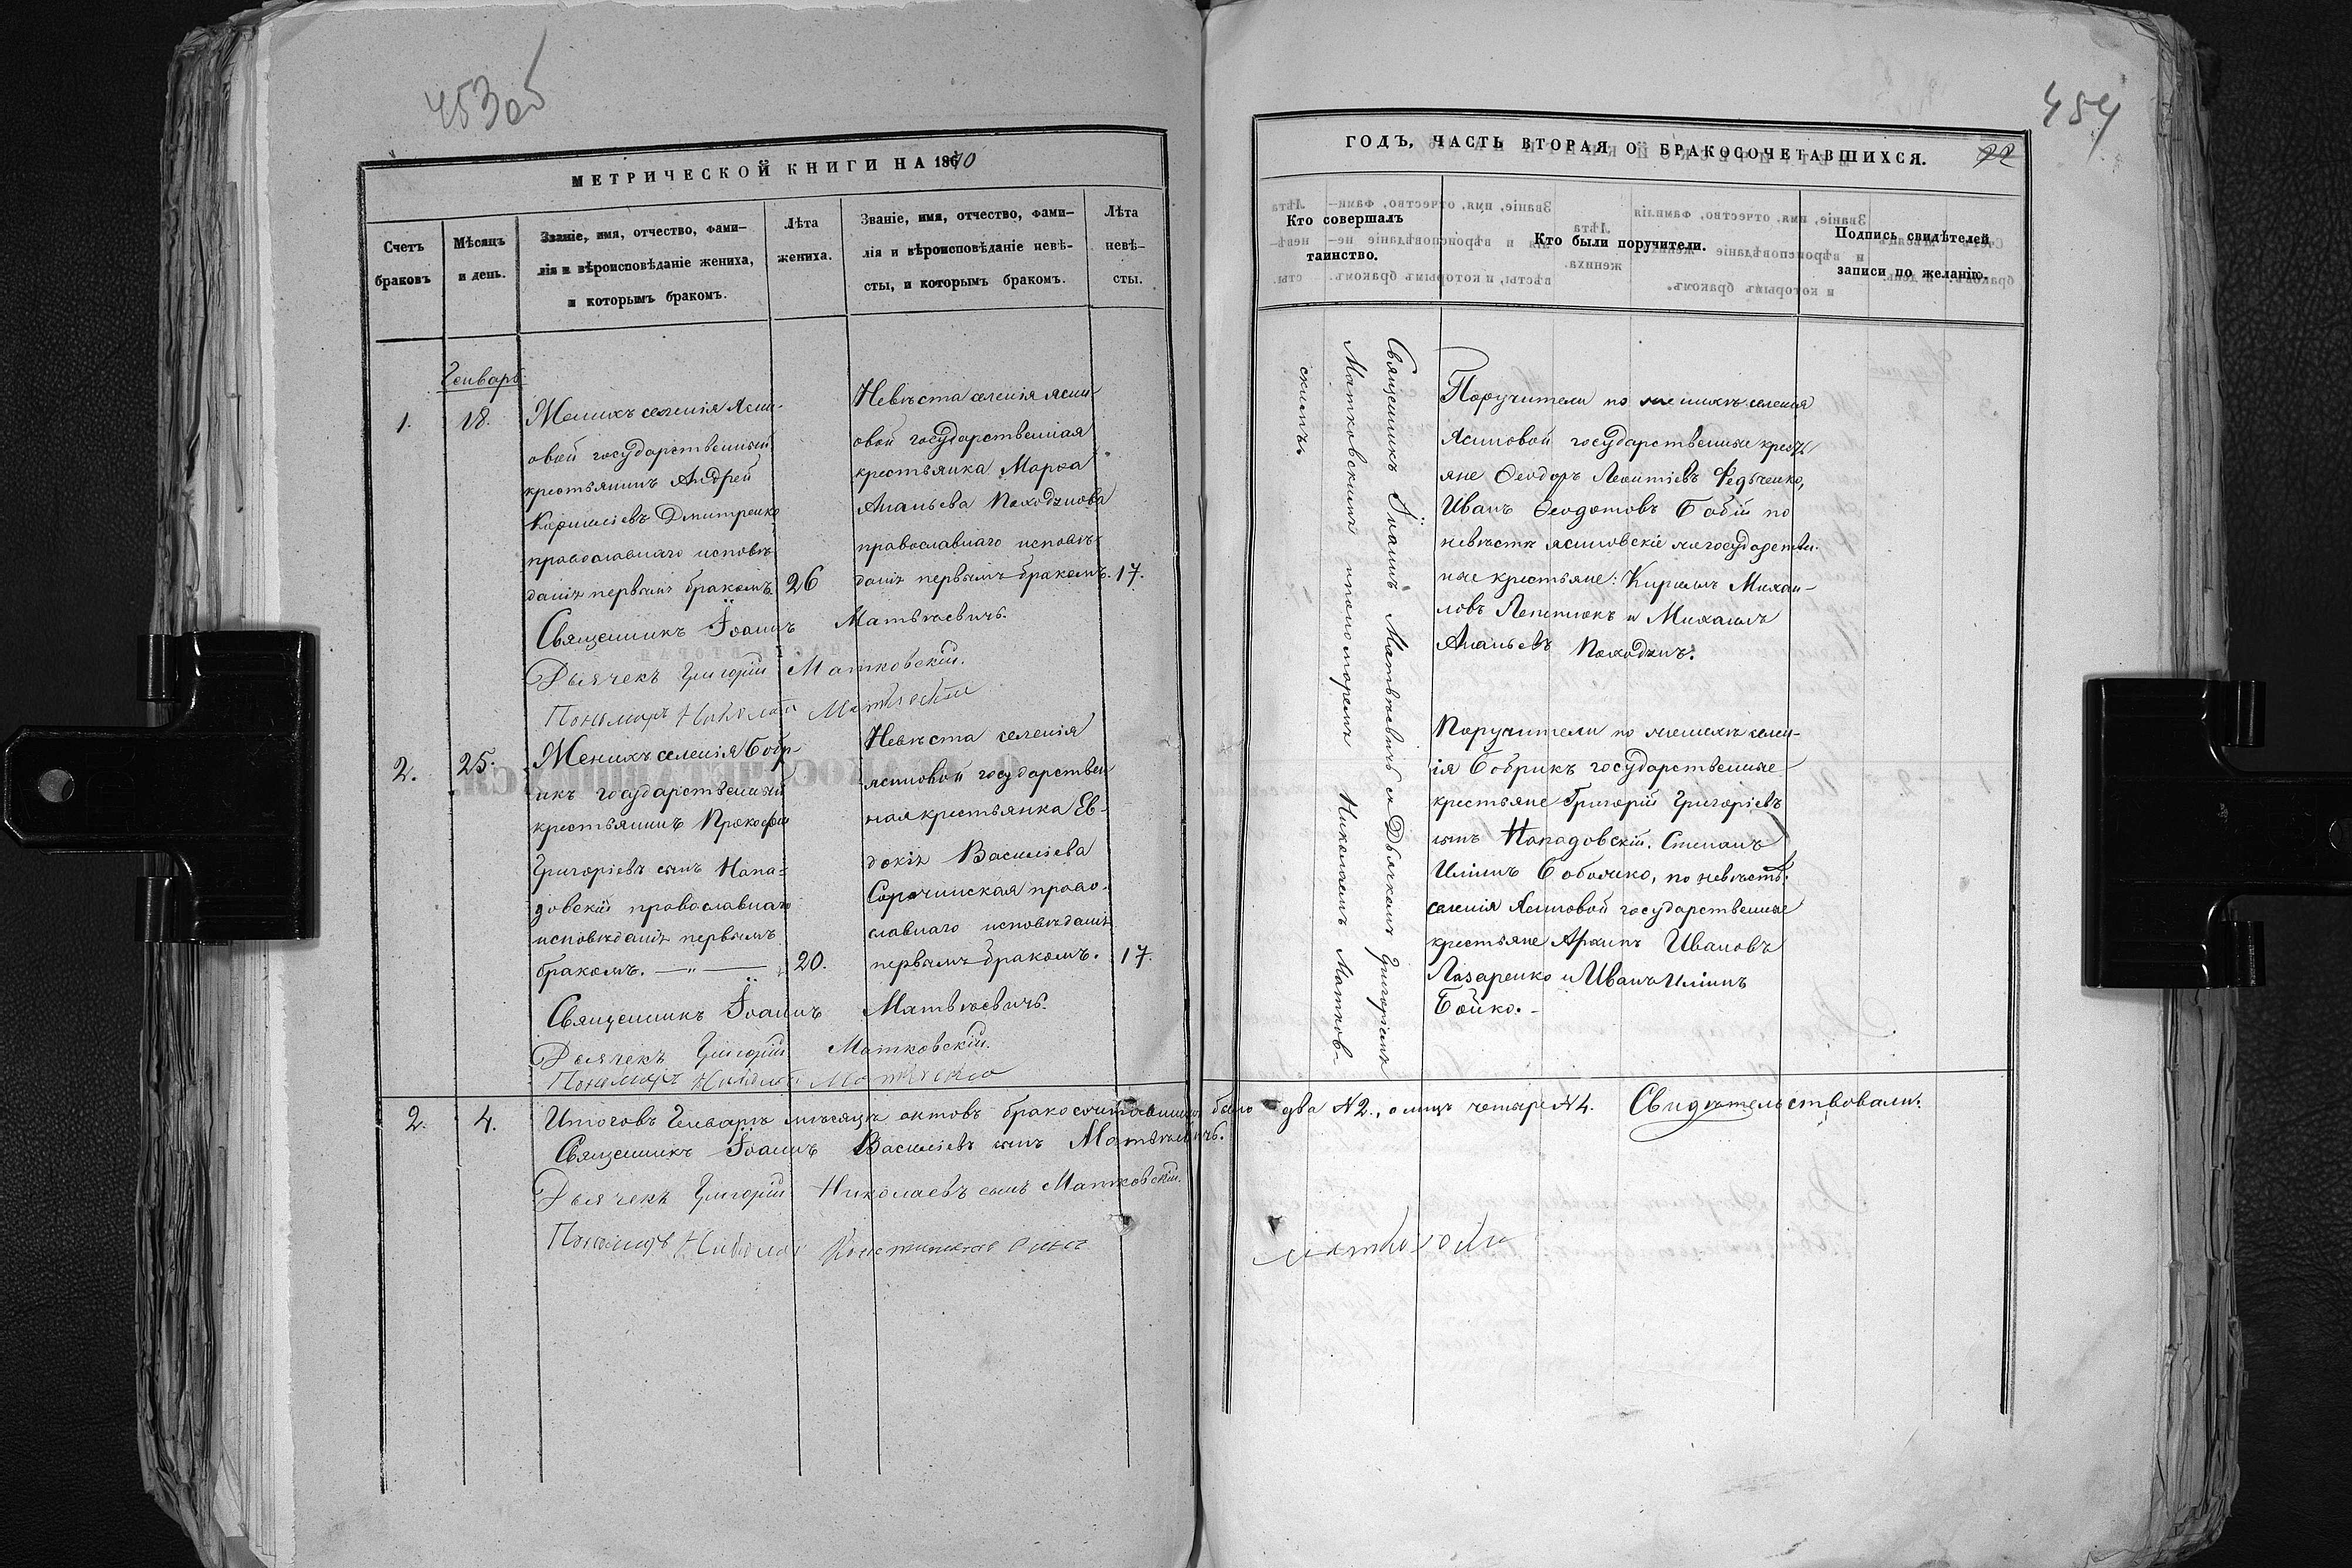 453 об
МЕТРИЧЕСКОЙ КНИГИ НА 1870
Счетъ браковъ
Мѣсяцъ и день.
Званіе, имя, отчество, фами-
лія и вѣроисповѣданіе жениха,
и которымъ бракомъ.
Лѣта жениха.
Званіе, имя, отчество, фами-
лія и вѣроисповѣданіе невѣ-
сты, и которымъ бракомъ.
Лѣта невѣ-
сты.
Генварь
1.
18.
Женихъ селенія Ясин-
овой государственный
крестьянинъ Андрей
Корниліевъ Дмитренко
православнаго исповѣ-
данія первымъ бракомъ
26
Невѣста селенія Ясин-
овой государственная
крестьянка Марѳа
Ананьева Походзиова
православнаго исповѣ-
данія первымъ бракомъ.
17.
Священникъ Іоаннъ Матвѣевичъ.
Дьячекъ Григорій Матковскій.
Пономарь Николай Матковскій
2.
25.
Женихъ селенія Бобр-
икъ государственный
крестьянинъ Прокофій
Григоріевъ сынъ Напа-
довскій православнаго
исповѣданія первымъ
бракомъ. — „ —
20.
Невѣста селенія
Ясиновой государствен
ная крестьянка Ев-
докія Василіева
Сорочинская право-
славнаго исповѣданія
первымъ бракомъ.
17.
Священникъ Іоаннъ Матвѣевичъ.
Дьячекъ Григорій Матковскій.
Пономарь Николай Матковскій
2.
4.
Итоговъ Генваря мѣсяцѣ актовъ бракосочетавшихся было два №2., а лицъ четыре №4. Свидѣтельствовали:
Священникъ Іоаннъ Василіевъ сынъ Матвѣевичъ.
Дьячекъ Григорій Николаевъ сынъ Матковскій.
Пономарь Николай Константиновъ сынъ Матковскій
454
22
ГОДЪ, ЧАСТЬ ВТОРАЯ, О БРАКОСОЧЕТАВШИХСЯ.
Кто совершалъ
таинство.
Кто были поручители.
Подпись свидѣтелей
записи по желанію.
Священникъ Іоаннъ Матвѣевичъ съ Дьячкомъ Григоріемъ
Матковскимъ и пономоремъ Николаемъ Матков-
скимъ
Поручители по женихѣ селенія
Ясиновой государственные крестья
яне Ѳеодоръ Леонтіевъ Федьченко,
Иванъ Ѳеодотовъ Бабій по
невѣстѣ Ясиновскіе же государствен-
ные крестьяне: Кирилъ Михаи-
ловъ Лепетюкъ и Михаилъ
Ананьевъ Походзиъ.
Поручители по женихѣ селен-
ія Бобрикъ государственные
крестьяне Григорій Григоріевъ
сынъ Нападовскій. Степанъ
Ильинъ Соболенко, по невѣстѣ.
селенія Ясиновой государственные
крестьяне Архипъ Ивановъ
Лазаренко и Иванъ Ильинъ
Бойко. -